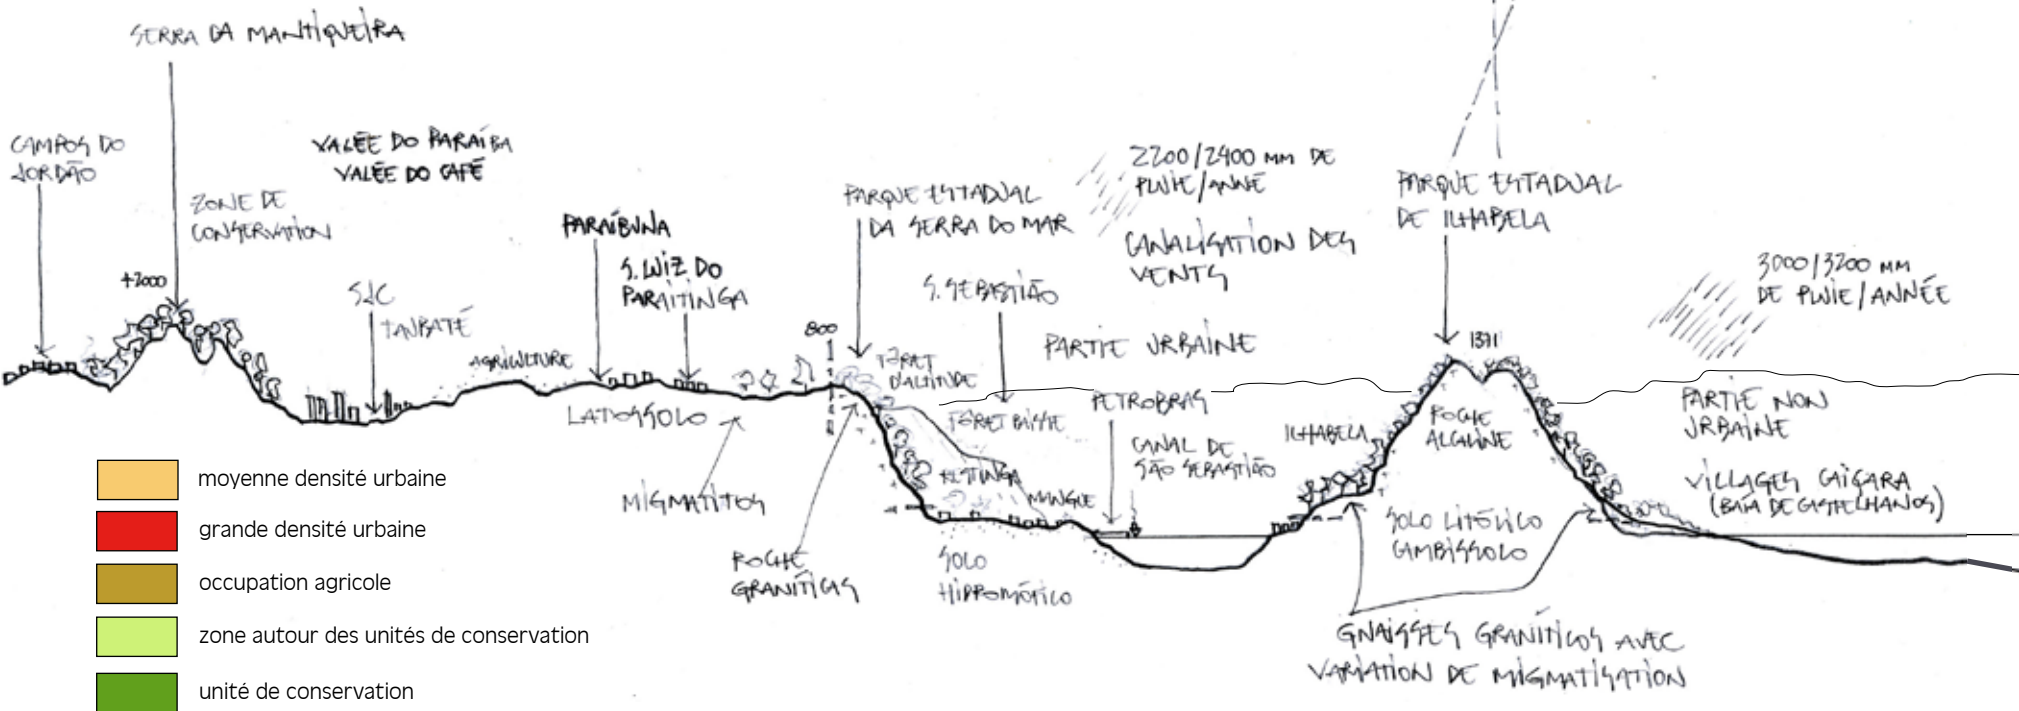 SERRA DA MANTIQUEIRA
CAMPOS DO
JORDÃO
ZONE DE
CONSERVATION
+2000
VALÉE DO PARAÍBA
VALÉE DO CAFÉ
SJC
TAUBATÉ
AGRICULTURE
PARAÍBUNA
S. LUIZ DO
PARAITINGA
LATOSSOLO
MIGMATITOS
800
PARQUE ESTADUAL
DA SERRA DO MAR
FORET
D'ALTITUDE
ROCHE
GRANÍTICAS
S. SEBASTIÃO
FORET BASSE
RESTINGA
MANGUE
SOLO
2200/2400 MM DE
PLUIE/ANNÉ
CANALISATION DES
VENTS
PARTIE URBAINE
PETROBRAS
CANAL DE
SÃO SEBASTIÃO
ILHABELA
PARQUE ESTADUAL
DE ILHABELA
1371
ROCHE
ALCALINE
SOLO LITÓLICO
CAMBISSOLO
GNAISSES GRANÍTICOS AVEC
VARIATION DE MIGMATISATION
3000/3200 MM
DE PLUIE/ANNÉE
PARTIE NON
URBAINE
VILLAGES CAIÇARA
(BAÍA DE CASTELHANOS)
moyenne densité urbaine
grande densité urbaine
occupation agricole
zone autour des unités de conservation
unité de conservation